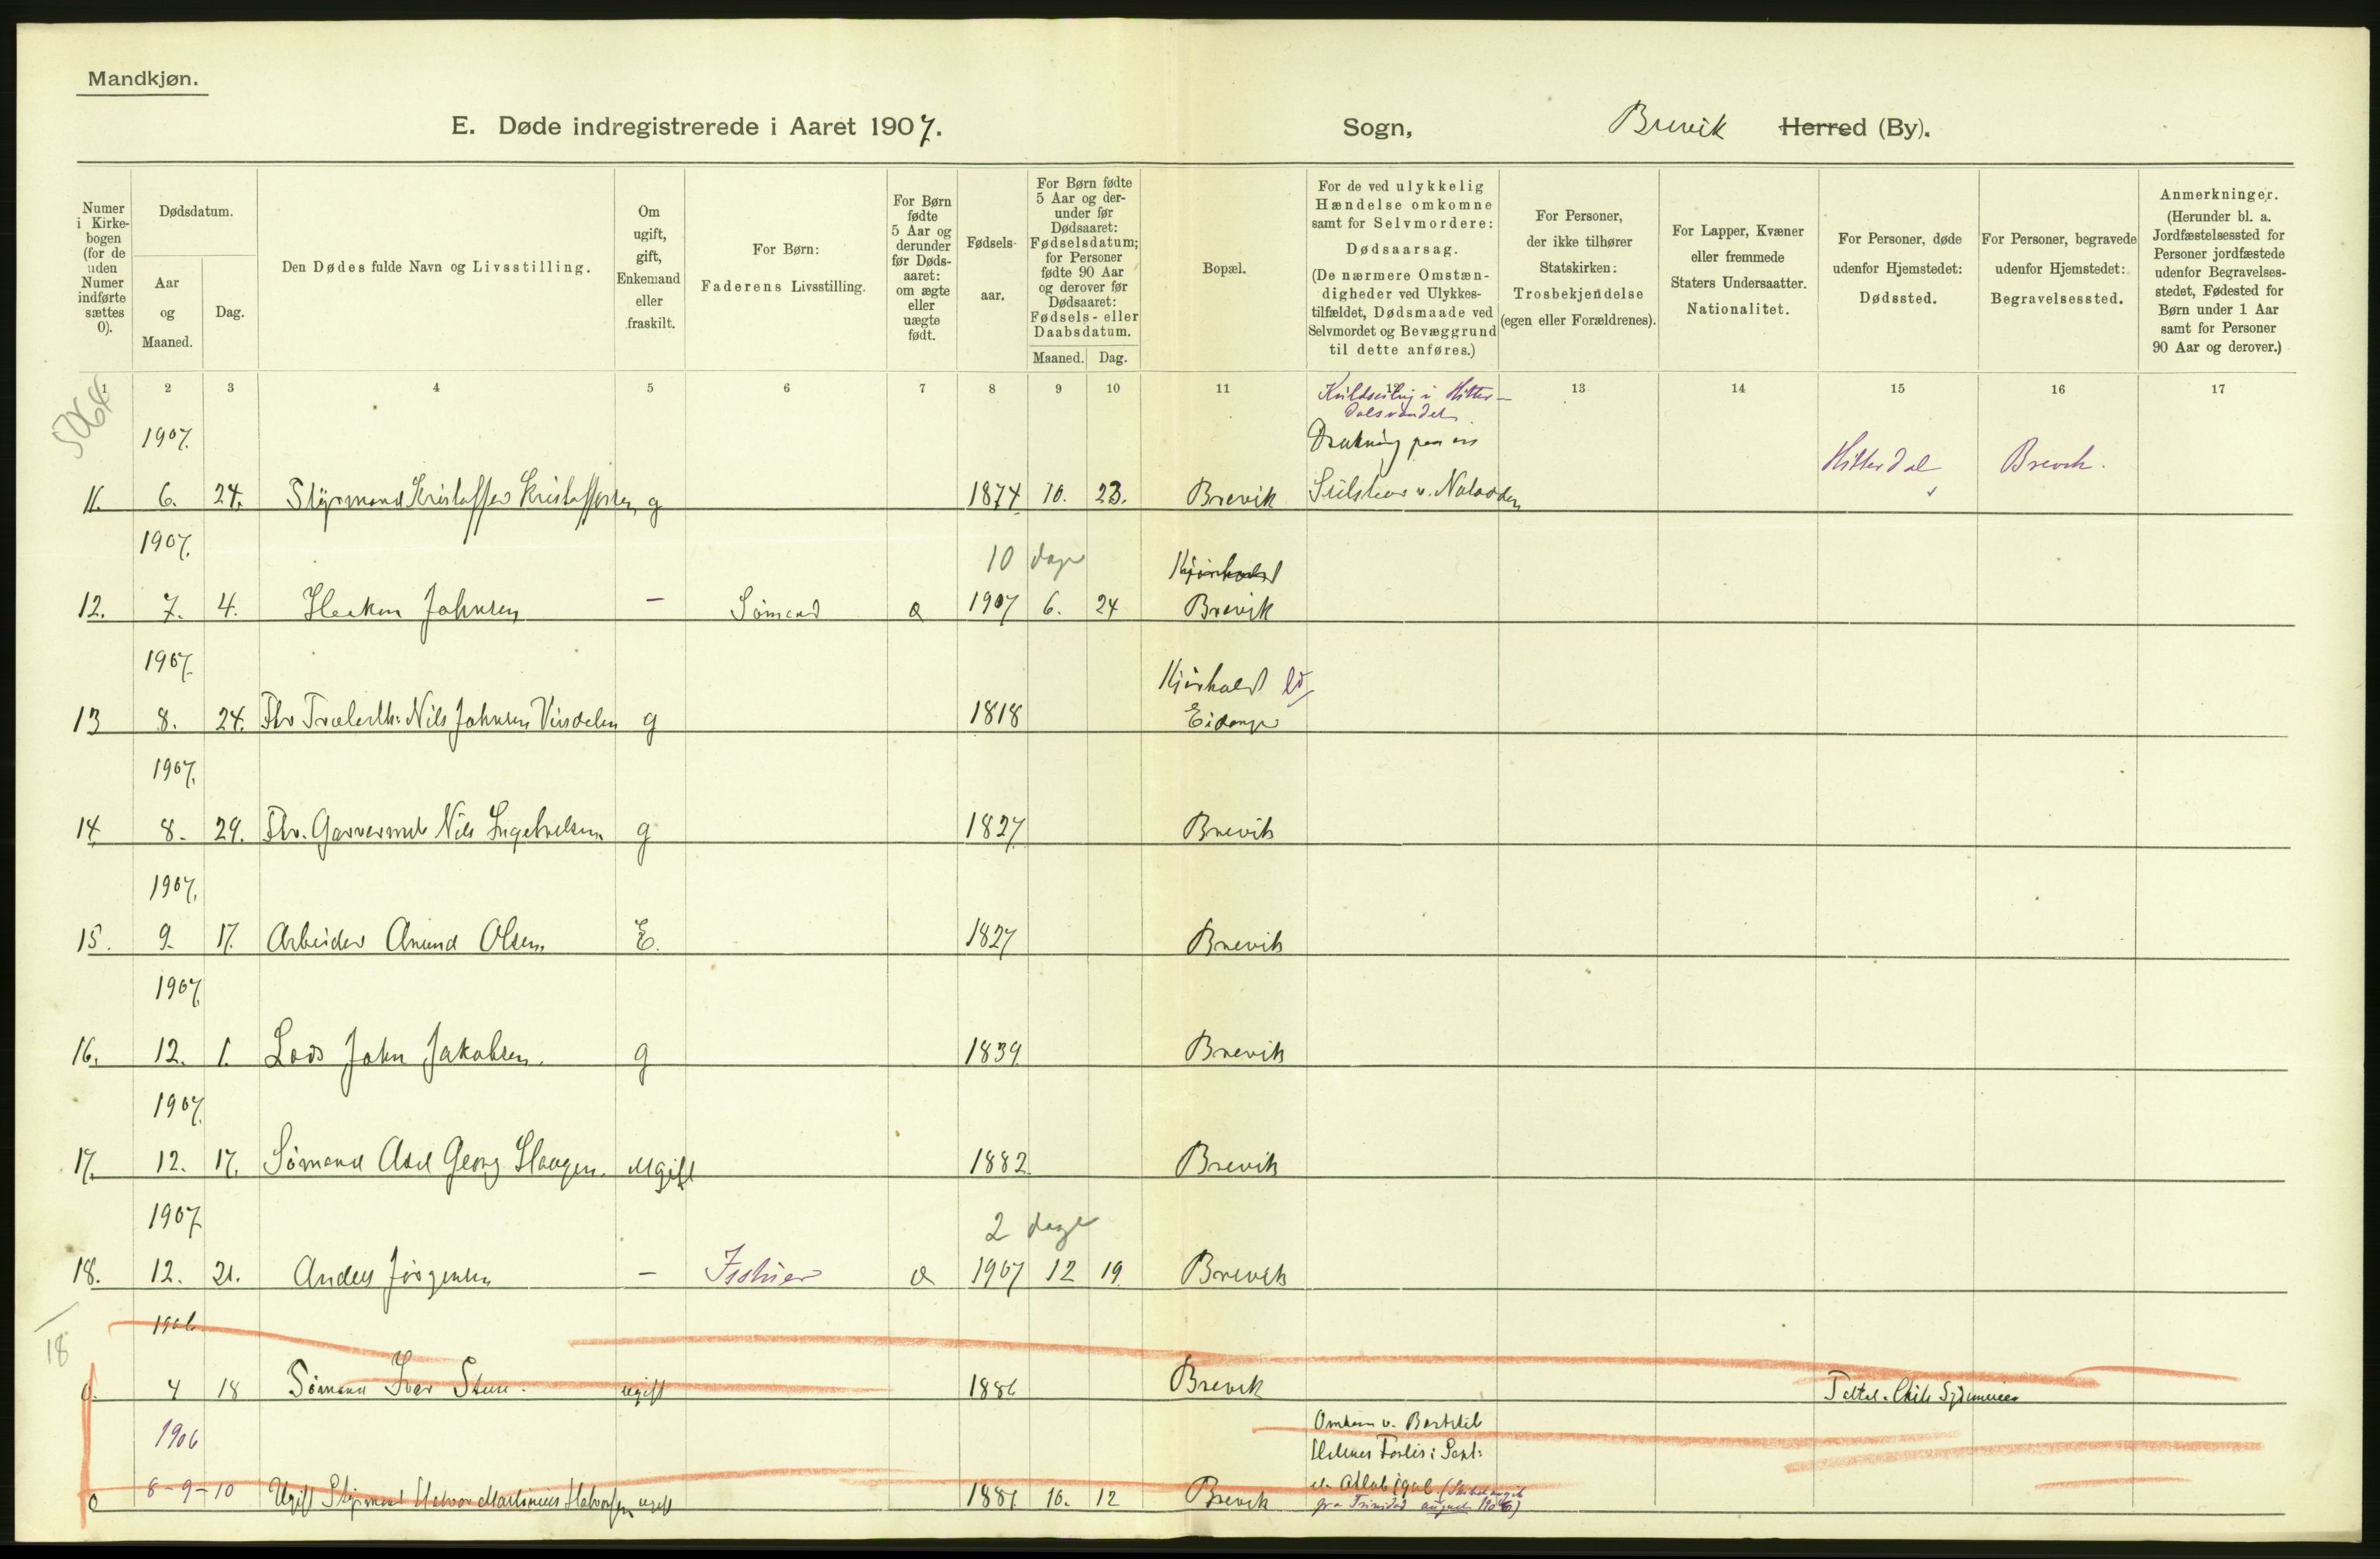 Mandkjøn.
E. Døde indregistrerede i Aaret 1907.
Sogn, Brevik Herred (By).
Numer
i Kirke-
bogen
(for de
uden
Numer
indførte
sættes
0).
Dødsdatum.
Aar
og
Maaned.
Dag.
Den Dødes fulde Navn og Livsstilling.
Om
ugift,
gift,
Enkemand
eller
fraskilt.
For Børn:
Faderens Livsstilling.
For Børn
fødte
5 Aar og
derunder
før Døds-
aaret:
om ægte
eller
uægte
født.
Fødsels-
aar.
For Børn fødte
5 Aar og der-
under før
Dødsaaret:
Fødselsdatum;
for Personer
fødte 90 Aar
og derover før
Dødsaaret:
Fødsels- eller
Daabsdatum.
Maaned. Dag.
Bopæl.
For de ved ulykkelig
Hændelse omkomne
samt for Selvmordere:
Dødsaarsag.
(De nærmere Omstæn-
digheder ved Ulykkes-
tilfældet, Dødsmaade ved
Selvmordet og Bevæggrund
til dette anføres.)
For Personer,
der ikke tilhører
Statskirken:
Trosbekjendelse
(egen eller Forældrenes).
For Lapper, Kvæner
eller fremmede
Staters Undersaatter.
Nationalitet.
For Personer, døde
udenfor Hjemstedet:
Dødssted.
For Personer, begravede
udenfor Hjemstedet:
Begravelsessted.
Anmerkninger.
(Herunder bl. a.
Jordfæstelsessted for
Personer jordfæstede
udenfor Begravelses-
stedet, Fødested for
Børn under 1 Aar
samt for Personer
90 Aar og derover.)
1 2 3 4 5 6 7 8 9 10 11 12 13 14 15 16 17
Kuldseiling i Hitter-
dalsvandet
1907.
Drukning paa en
11. 6. 24. Styrmand Kristoffer Kristoffersen g 1874 10. 23. Brevik Seilskur v. Notodden Hitterdal Brevik.
1907.
10 dage Kjørholt
12. 7. 4. Haakon Johnsen - Sømand æ 1907 6. 24 Brevik
1907.
Kjørholt
13 8. 24. Fhv Nils Johnsen g 1818 Eidanger
1907.
14 8. 29. Fhv. Garverm Nils Ingebretsen g 1827 Brevik
1907.
15. 9. 17. Arbeider Anund Olsen. E. 1827 Brevik
1907.
16. 12. 1. Lods John Jakobsen. g 1839 Brevik
1907.
17. 12. 17. Sømand Axel Georg Haagen. ugift 1882 Brevik
1907
2 dage
18. 12. 21. Anders Jørgensen - Isskjær æ 1907 12 19. Brevik
18
1906
0. 4 18 Sømand Iver Steen. ugift 1886 Brevik Taltal. Chile Sydamerica
1906
Omkom v. Barkskib
Helenes Forlis i Sept:
0 8-9-10 Ugift Styrmand Halvor Martinius Halvorsen ugift 1881 10. 12 Brevik
fra Trinidad august 1906)